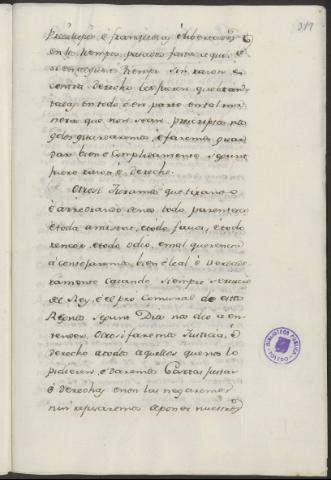 319
Privilegios e franquezas, e libertades q
en los tiempos pasados fasta aqui, e
si en algun tiempo sin razon e
contra derecho les fueron quebran-
tadas en todo o en parte en tal ma
nera que non sean prescriptas no
gelos guardaremos e faremos guar
dar bien e complidamente segunt
fuero razon e derecho.
Otrosi Juramos que tirando
e arredrando de nos todo parentesco
e toda amistat, e todo favor, e todo
rencor, e todo odio, e mal querencia
aconsejaremos bien e leal e verdade
ramente catando siempre servicio
del Rey, e el pro comunal de estos
Regnos segunt Dios nos dio a en
tender. Otrosi faremos Justicia, e
derecho a todos aquellos que nos lo
pidieren, e daremos Cartas justas
e derechas e non las negaremos
nin refusaremos a poner nuestros
BIBLIOTECA PUBLICA